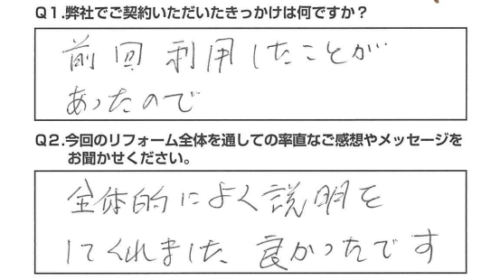 Q1.弊社でご契約いただいたきっかけは何ですか？
前回利用したことが
あったので
Q2.今回のリフォーム全体を通しての率直なご感想やメッセージを
お聞かせください。
全体的によく説明を
してくれました 良かったです